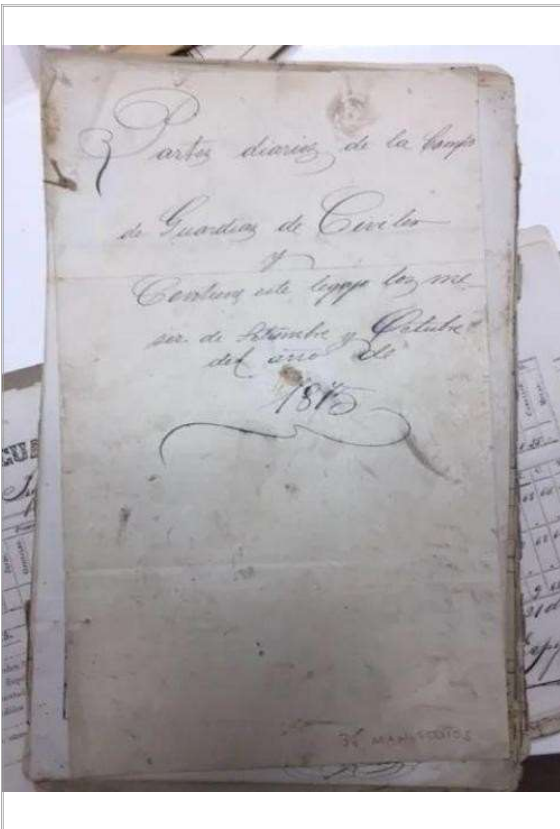 Partes diarios de la Comp
de Guardias de Civiles
y
Contiene este legajo los me
ses de Setiembre y Octubre
del año de
1875